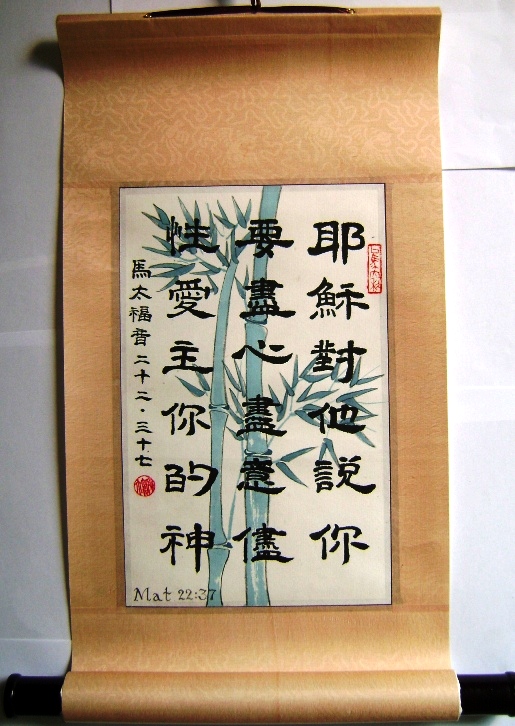 耶穌對他說你
要盡心盡意儘
性愛主你的神
馬太福音二十二·三十七
Mat 22:37